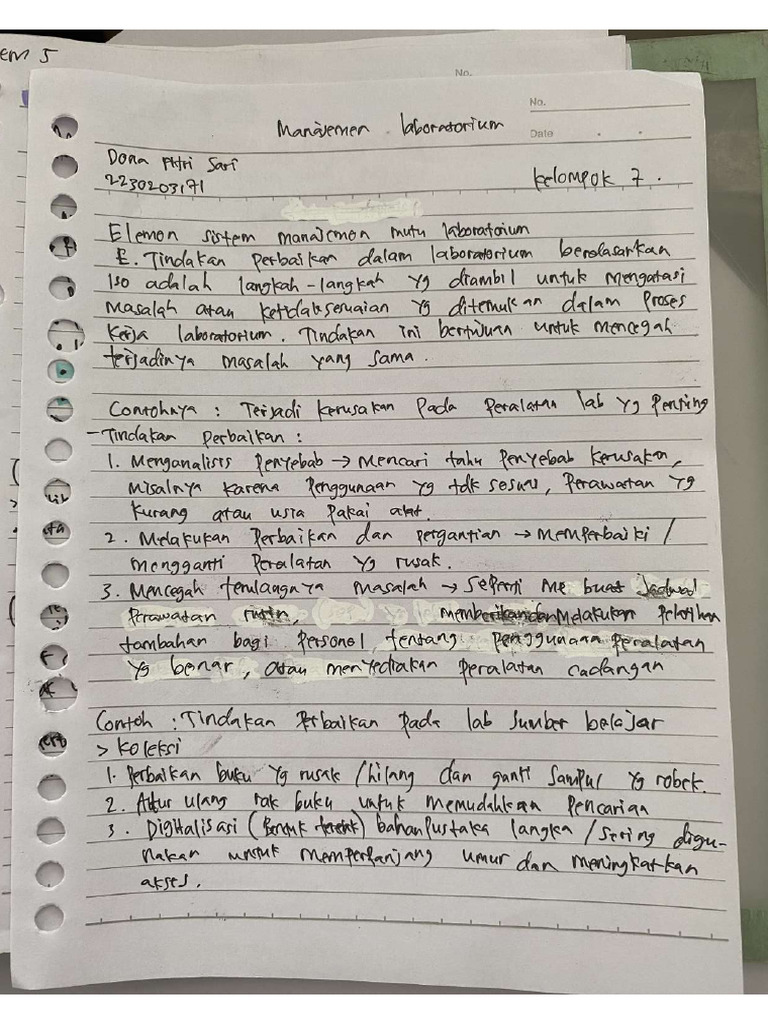 em 5
No.
No.
Manajemen laboratorium
Date
Dona Fitri Sari
2230203171
Kelompok 7.
Elemen sistem manajemen mutu laboratorium
E. Tindakan Perbaikan dalam laboratorium berdasarkan
Iso adalah langkah-langkah yg diambil untuk mengatasi
Masalah atau ketidaksesuaian yg ditemukan dalam Proses
Kerja laboratorium. Tindakan ini bertujuan untuk mencegah
terjadinya masalah yang sama.
Contohnya : Terjadi kerusakan Pada Peralatan lab yg Penting
- Tindakan Perbaikan :
1. Menganalisis Penyebab → Mencari tahu Penyebab kerusakan,
Misalnya karena Penggunaan yg tdk sesuai, Perawatan yg
kurang atau usia Pakai alat.
2. Melakukan Perbaikan dan pergantian → memperbaiki /
mengganti Peralatan yg rusak.
3. Mencegah terulangnya masalah → Seperti Me buat Jadwal
Perawatan rutin, memberikan dan Melakukan Pelatihan
tambahan bagi Personel tentang Penggunaan Peralatan
yg benar, atau menyediakan Peralatan cadangan
Contoh : Tindakan Perbaikan pada lab Sumber belajar
> Koleksi
1. Perbaikan buku yg rusak / hilang dan ganti Sampul yg robek.
2. Atur ulang rak buku untuk memudahkan Pencarian
3. Digitalisasi (Bentuk ) bahan Pustaka langka / Sering digu-
nakan untuk memperpanjang umur dan meningkatkan
akses.